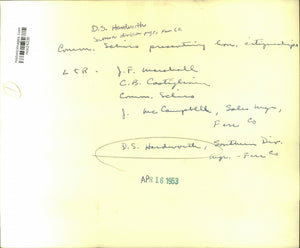 D.S. Hardworth
Southern division mgr, Fem Co
Comm. Schiro presenting hon. citizenships
L & R - J.F. Marshall
C.B. Castiglione
Comm. Schiro
J. McCampbell, Sales Mgr,
Fem Co
D.S. Hardworth, Southern Div.
mgr. - Fem Co
APR 16 1953